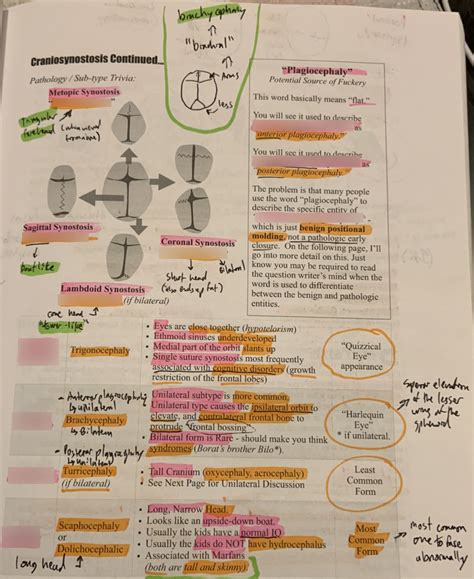 brachycephaly
"bindural"
Arms
less
Craniosynostosis Continued...
Pathology / Sub-type Trivia:
Metopic Synostosis
forehead
Sagittal Synostosis
Boat like
Coronal Synostosis
Bilateral
Short head
Lambdoid Synostosis
(if bilateral)
cone head
"Plagiocephaly"
Potential Source of Fuckery
This word basically means "flat."
You will see it used to describe
as
anterior plagiocephaly."
You will see it used to describe
as
posterior plagiocephaly."
The problem is that many people
use the word "plagiocephaly" to
describe the specific entity of
which is just benign positional
molding, not a pathologic early
closure. On the following page, I'll
go into more detail on this. Just
know you may be required to read
the question writer's mind when the
word is used to differentiate
between the benign and pathologic
entities.
Trigonocephaly
• Eyes are close together (hypotelorism)
• Ethmoid sinuses underdeveloped
• Medial part of the orbit slants up
• Single suture synostosis most frequently
associated with cognitive disorders (growth
restriction of the frontal lobes)
"Quizzical
Eye"
appearance
- Anterior plagiocephaly
is unilateral
Brachycephaly
is Bilateral
• Unilateral subtype is more common,
• Unilateral type causes the ipsilateral orbit to
elevate, and contralateral frontal bone to
protrude "frontal bossing".
• Bilateral form is Rare - should make you think
syndromes (Borat's brother Bilo*).
"Harlequin
Eye"
* if unilateral.
Superior elevation
of the lesser
wing of the
sphenoid
- Posterior plagiocephaly
is unilateral
Turricephaly
(if bilateral)
• Tall Cranium (oxycephaly, acrocephaly)
• See Next Page for Unilateral Discussion
Least
Common
Form
Scaphocephaly
or
Dolichocephalic
long head
• Long, Narrow Head.
• Looks like an upside-down boat.
• Usually the kids have a normal IQ
• Usually the kids do NOT have hydrocephalus
• Associated with Marfans
(both are tall and skinny).
Most
Common
Form
most common
one to fuse
abnormally